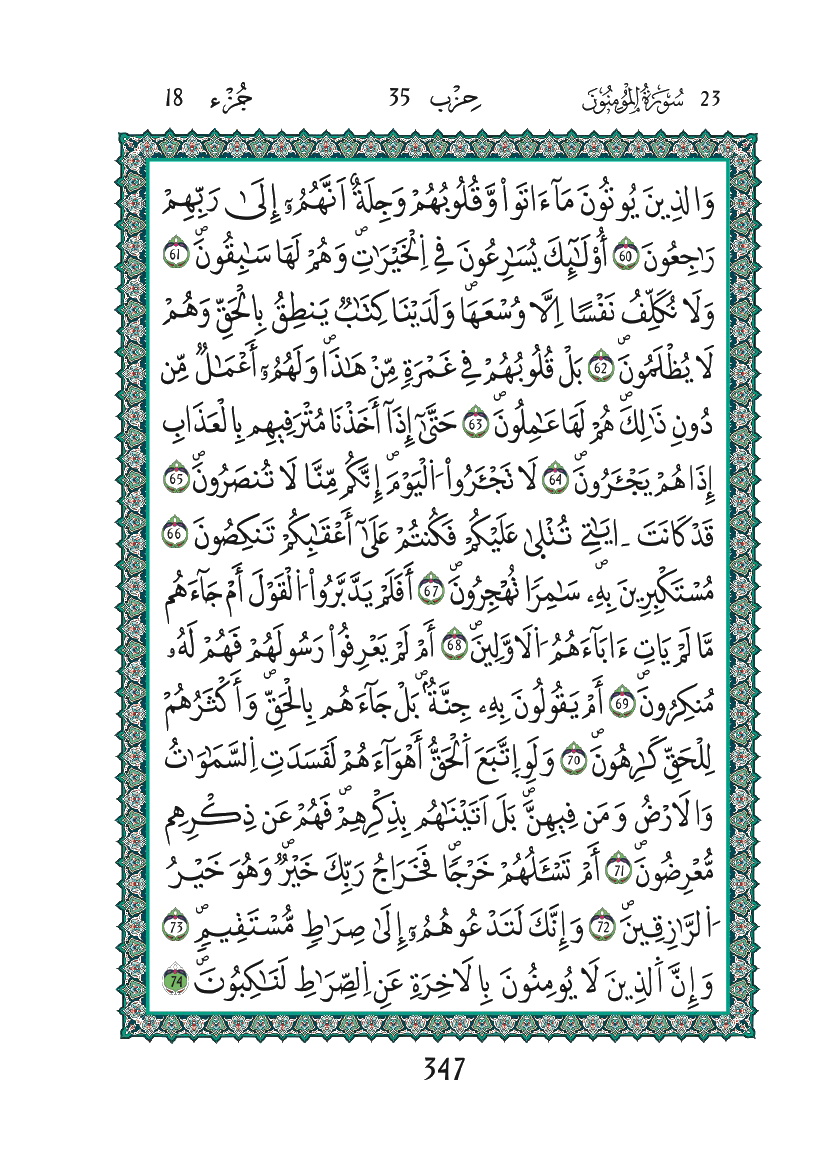 23 سُورَةُ اُلْمُومِنُونَ حِزْب 35 جُزْء 18
وَالذِينَ يُوتُونَ مَآ ءَاتَواْ وَّقُلُوبُهُمْ وَجِلَةٌ اَنَّهُمُۥٓ إِلَىٰ رَبِّهِمْ
رَٰجِعُونَ 60 أُوْلَٰٓئِكَ يُسَٰرِعُونَ فِے اِ۬لْخَيْرَٰتِۖ وَهُمْ لَهَا سَٰبِقُونَۖ 61
وَلَا نُكَلِّفُ نَفْساً اِلَّا وُسْعَهَاۖ وَلَدَيْنَا كِتَٰبٞ يَنطِقُ بِالْحَقِّ وَهُمْ
لَا يُظْلَمُونَۖ 62 بَلْ قُلُوبُهُمْ فِے غَمْرَةٖ مِّنْ هَٰذَاۖ وَلَهُمُۥٓ أَعْمَٰلٞ مِّن
دُونِ ذَٰلِكَۖ هُمْ لَهَا عَٰمِلُونَۖ 63 حَتَّىٰٓ إِذَآ أَخَذْنَا مُتْرَفِيهِم بِالْعَذَابِ
إِذَا هُمْ يَجْـَٔرُونَۖ 64 لَا تَجْـَٔرُواْ اُ۬لْيَوْمَۖ إِنَّكُم مِّنَّا لَا تُنصَرُونَۖ 65
قَدْ كَانَتَ اٰيَٰتِے تُتْلَىٰ عَلَيْكُمْ فَكُنتُمْ عَلَىٰٓ أَعْقَٰبِكُمْ تَنكِصُونَ 66
مُسْتَكْبِرِينَ بِهِۦۖ سَٰمِراٗ تُهْجِرُونَۖ 67 أَفَلَمْ يَدَّبَّرُواْ اُ۬لْقَوْلَ أَمْ جَآءَهُم
مَّا لَمْ يَاتِ ءَابَآءَهُمُ اُ۬لَاوَّلِينَۖ 68 أَمْ لَمْ يَعْرِفُواْ رَسُولَهُمْ فَهُمْ لَهُۥ
مُنكِرُونَۖ 69 أَمْ يَقُولُونَ بِهِۦ جِنَّةُۢۖ بَلْ جَآءَهُم بِالْحَقِّۖ وَأَكْثَرُهُمْ
لِلْحَقِّ كَٰرِهُونَۖ 70 وَلَوِ اِ۪تَّبَعَ اَ۬لْحَقُّ أَهْوَآءَهُمْ لَفَسَدَتِ اِ۬لسَّمَٰوَٰتُ
وَالَارْضُ وَمَن فِيهِنَّۖ بَلَ اَتَيْنَٰهُم بِذِكْرِهِمْۖ فَهُمْ عَن ذِكْرِهِم
مُّعْرِضُونَۖ 71 أَمْ تَسْـَٔلُهُمْ خَرْجاٗۖ فَخَرَاجُ رَبِّكَ خَيْرٞۖ وَهُوَ خَيْرُ
اُ۬لرَّٰزِقِينَۖ 72 وَإِنَّكَ لَتَدْعُوهُمُۥٓ إِلَىٰ صِرَٰطٖ مُّسْتَقِيمٖۖ 73
وَإِنَّ اَ۬لذِينَ لَا يُومِنُونَ بِالَاخِرَةِ عَنِ اِ۬لصِّرَٰطِ لَنَٰكِبُونَۖ 74
347